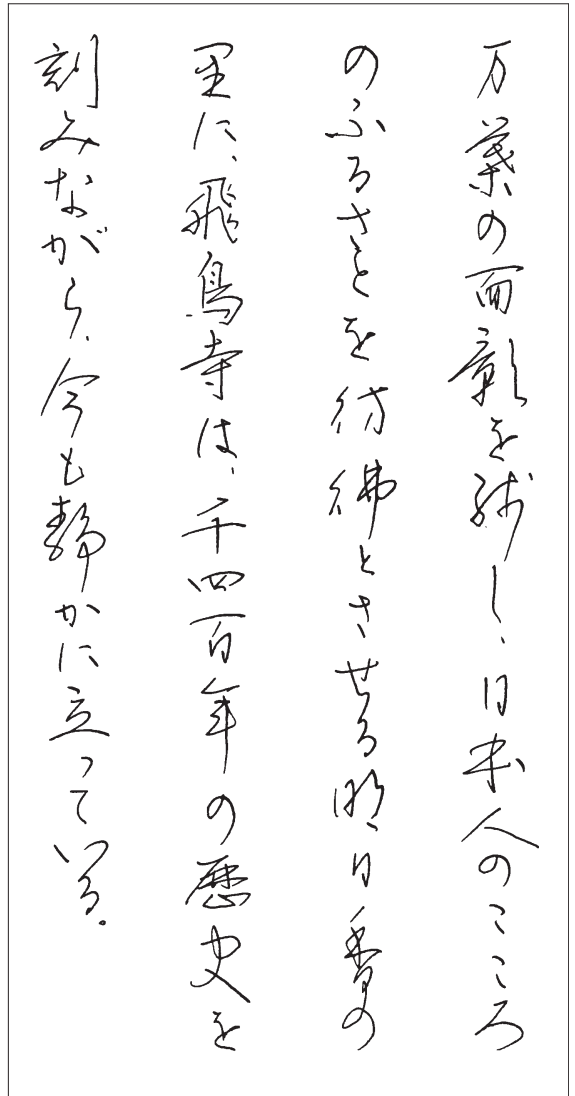 万葉の面影を残し、日本人のこころ
のふるさとを彷彿とさせる明日香の
里に、飛鳥寺は、千四百年の歴史を
刻みながら、今も静かに立っている。